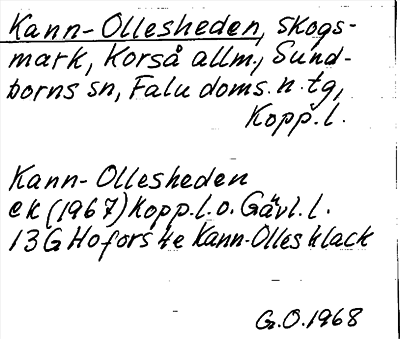 Kann-Ollesheden, skogs-
mark, Korså allm., Sund-
borns sn, Falu doms. n. tg,
Kopp. l.
Kann-Ollesheden
ek (1967) Kopp. l. o. Gävl. l.
13G Hofors 4e Kann-Olles klack
G.O. 1968